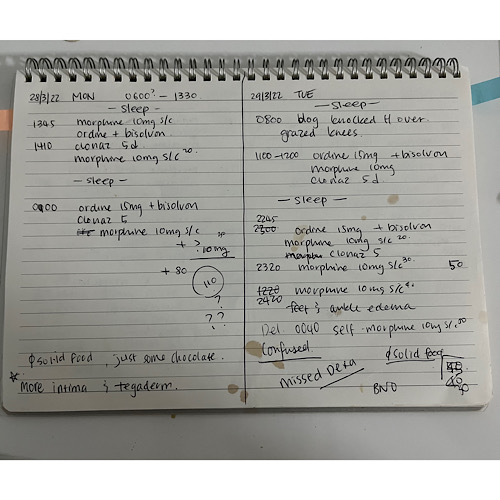 28/3/22 MON 0600? - 1330
- Sleep -
1345 morphine 10mg s/c
ordine + bisolvon
1410 clonaz 5d
morphine 10mg s/c 20
- sleep -
ordine 15mg + bisolvon
Clonaz 5
morphine 10mg s/c 30
+ > 10mg
+ 80
110
?
??
∅ solid food, just some chocolate.
* More intima & tegaderm.
29/3/22 TUE
- Sleep -
0800 blog knocked H over.
grazed knees.
1100-1200 ordine 15mg + bisolvon
morphine 10mg
Clonaz 5d.
- Sleep -
2245
2300 ordine 15mg + bisolvon
morphine 10mg s/c 20.
morphin clonaz 5
2320 morphine 10mg s/c 30. 50
1220 morphine 10mg s/c
2420 feet & ankle edema
Del 0040 self morphine 10mg s/c 50
Confused ∅ solid food
missed Deta
BNO